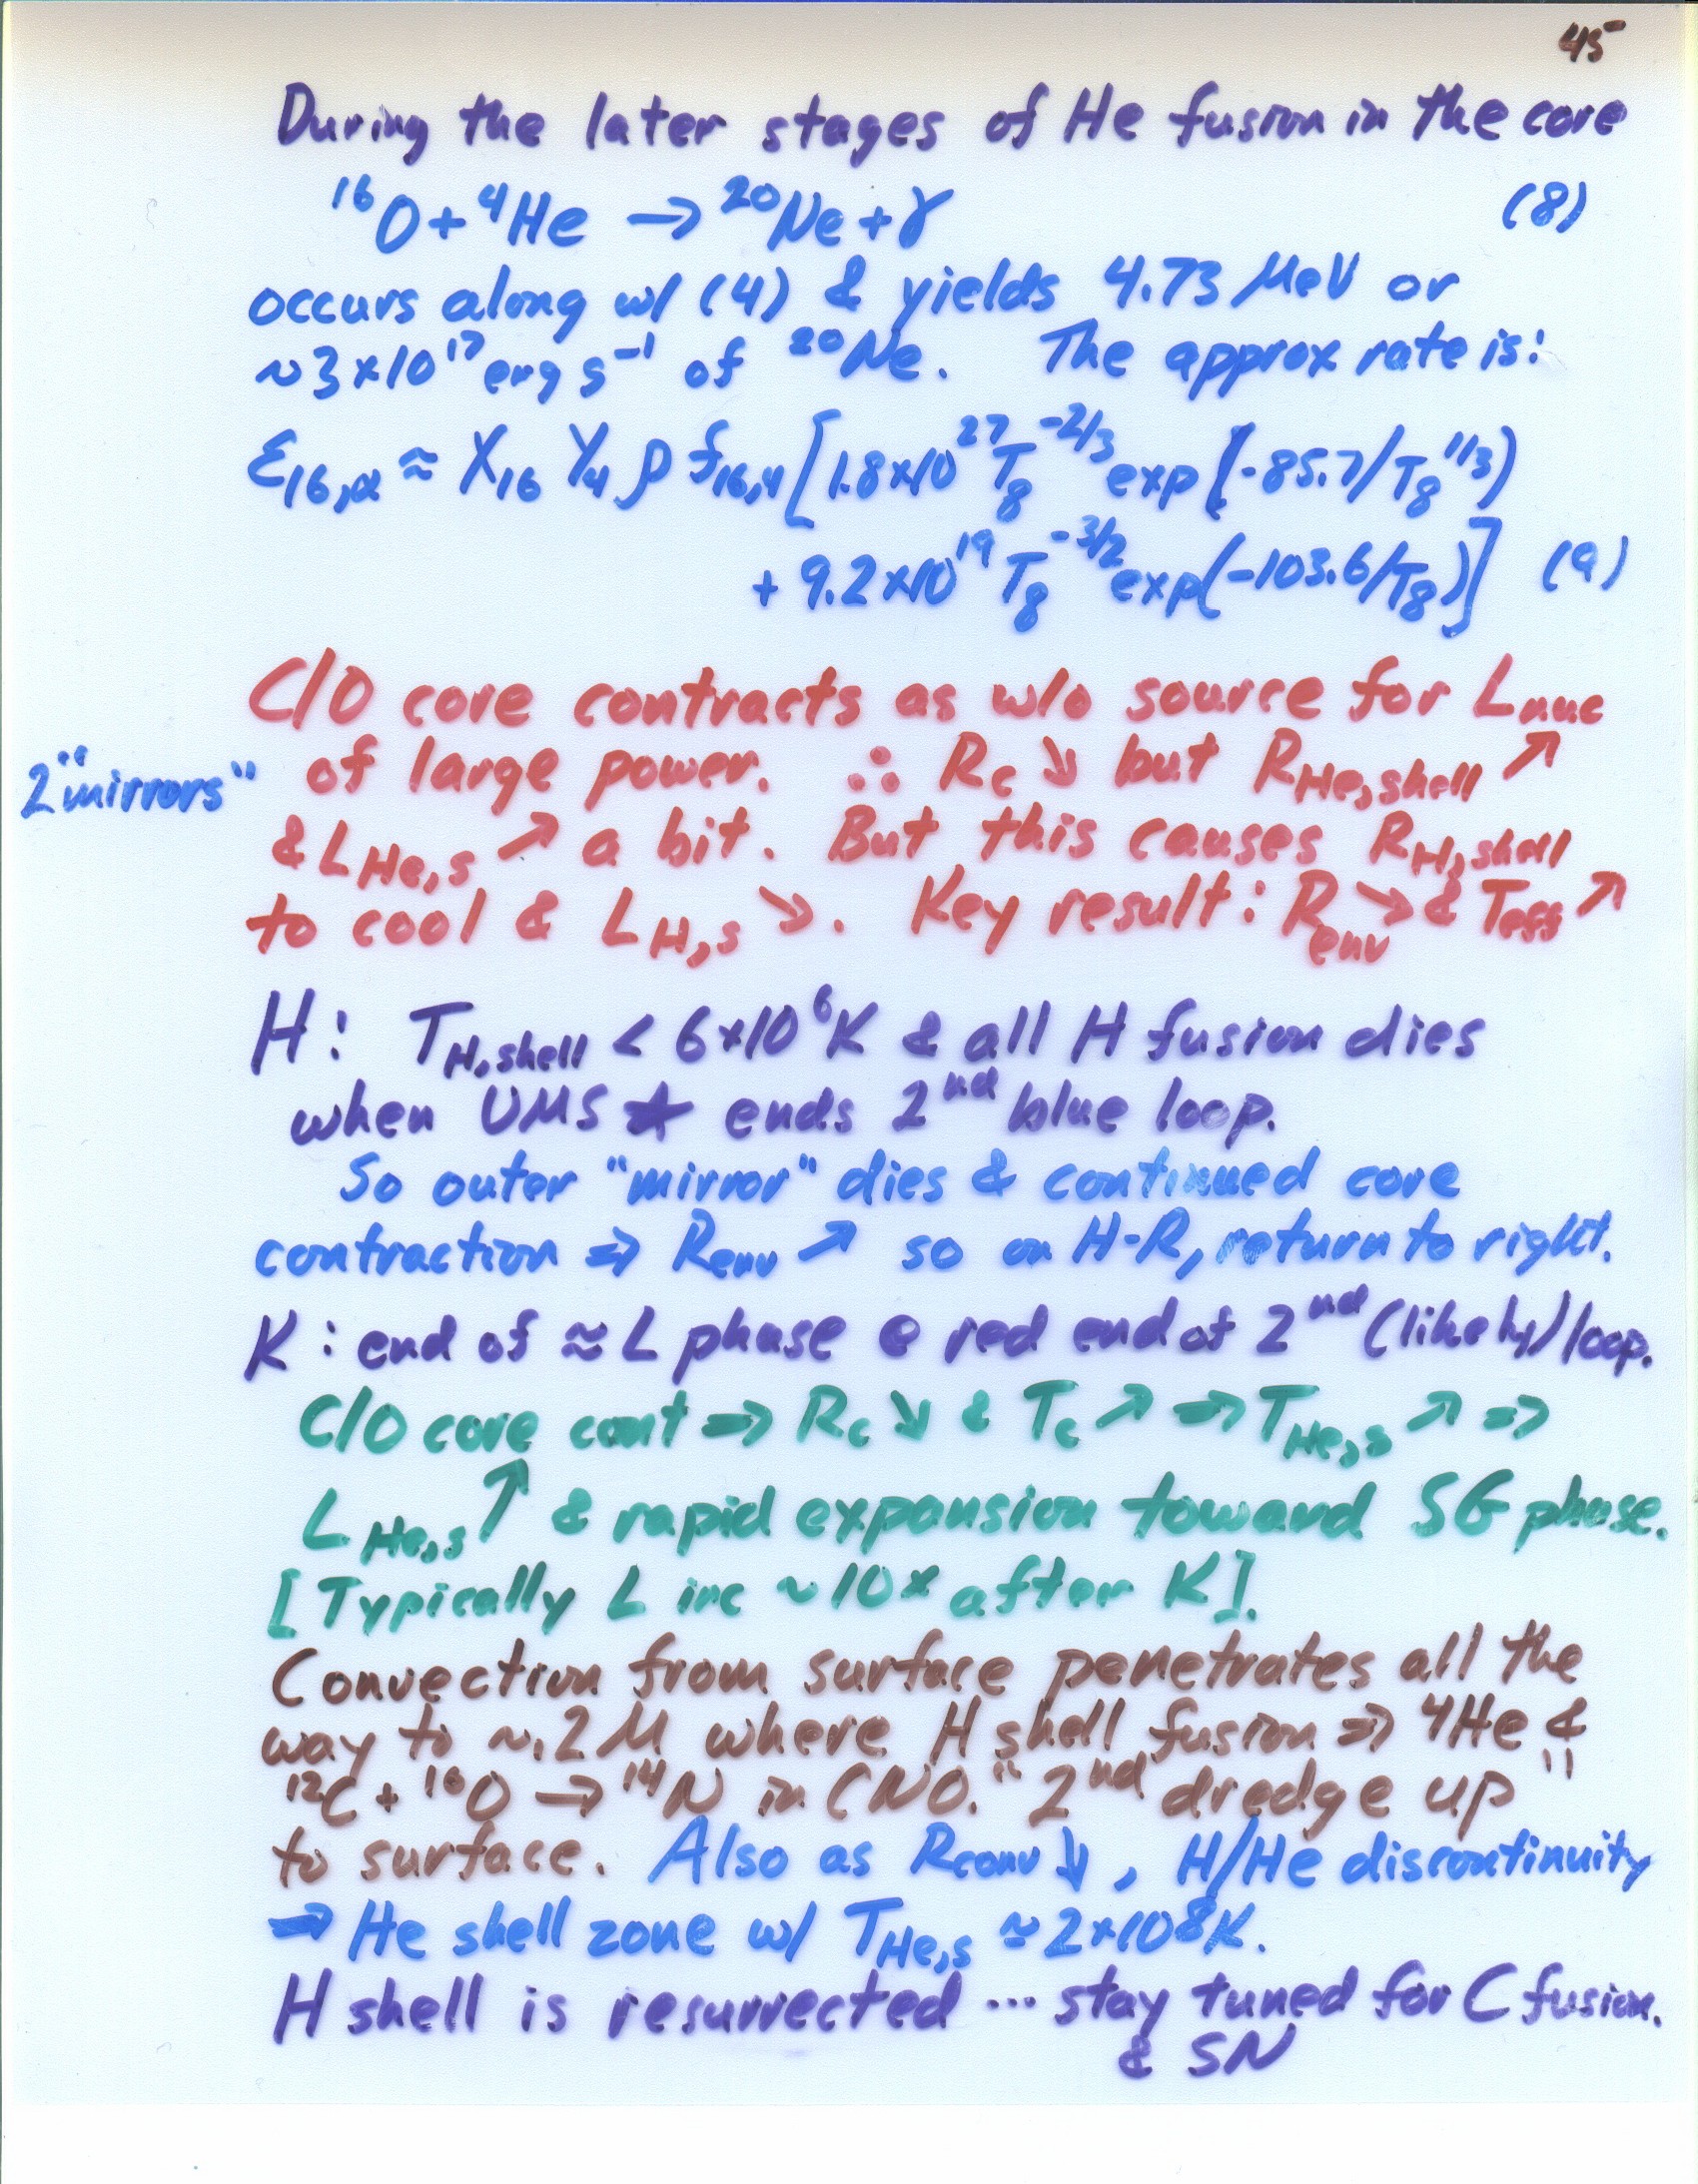 45
During the later stages of He fusion in the core
¹⁶O + ⁴He → ²⁰Ne + γ (8)
occurs along w/ (4) & yields 4.73 MeV or
~3×10¹⁷ erg s⁻¹ of ²⁰Ne. The approx rate is:
ε₁₆,α ≈ X₁₆ Y₄ ρ f₁₆,₄ [1.8×10²⁷ T₈^-2/3 exp(-85.7/T₈^1/3)
+ 9.2×10¹⁹ T₈^-3/2 exp(-103.6/T₈)] (9)
C/O core contracts as w/o source for L_nuc
2 "mirrors" of large power. ∴ R_c ↘ but R_He,shell ↗
& L_He,s ↗ a bit. But this causes R_H,shell
to cool & L_H,s ↘. Key result: R_env ↘ & T_eff ↗
H: T_H,shell < 6×10⁶K & all H fusion dies
when UMS ★ ends 2nd blue loop.
So outer "mirror" dies & continued core
contraction ⇒ R_env ↗ so on H-R, return to right.
K: end of ≈ L phase @ red end of 2nd (likely) loop.
C/O core cont ⇒ R_c ↘ & T_c ↗ ⇒ T_He,s ↗ ⇒
L_He,s ↑ & rapid expansion toward SG phase.
[Typically L inc ~10× after K].
Convection from surface penetrates all the
way to ~.2 M where H shell fusion ⇒ ⁴He &
¹²C + ¹⁶O → ¹⁴N in CNO. "2nd dredge up"
to surface. Also as R_conv ↓, H/He discontinuity
⇒ He shell zone w/ T_He,s ≈ 2×10⁸K.
H shell is resurrected ... stay tuned for C fusion.
& SN